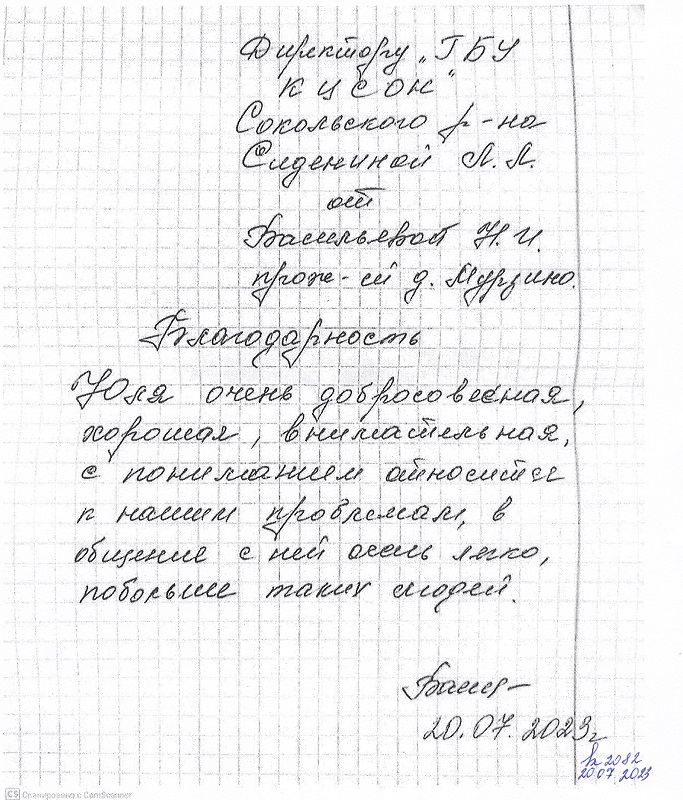 Директору „ГБУ
КЦСОН"
Сокольского р-на
Сидениной Л.Л.
от
Васильевой Н.И.
прож-ей д. Мурзино.
Благодарность
Юля очень добросовесная,
хорошая, внимательная,
с пониманием относится
к нашим проблемам, в
общение с ней очень легко,
побольше таких людей.
20.07.2023г
2082
20.07.2023
CS Сканировано с CamScanner